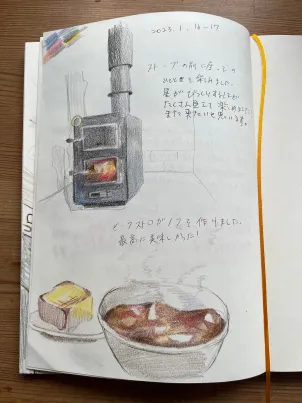 2023.1.16-17
ストーブの前に座っての
ひとときを楽しみました。
星がびっくりするほど
たくさん見えて楽しめました。
また来たいと思います。
ビーフストロガノフを作りました。
最高に美味しかった!